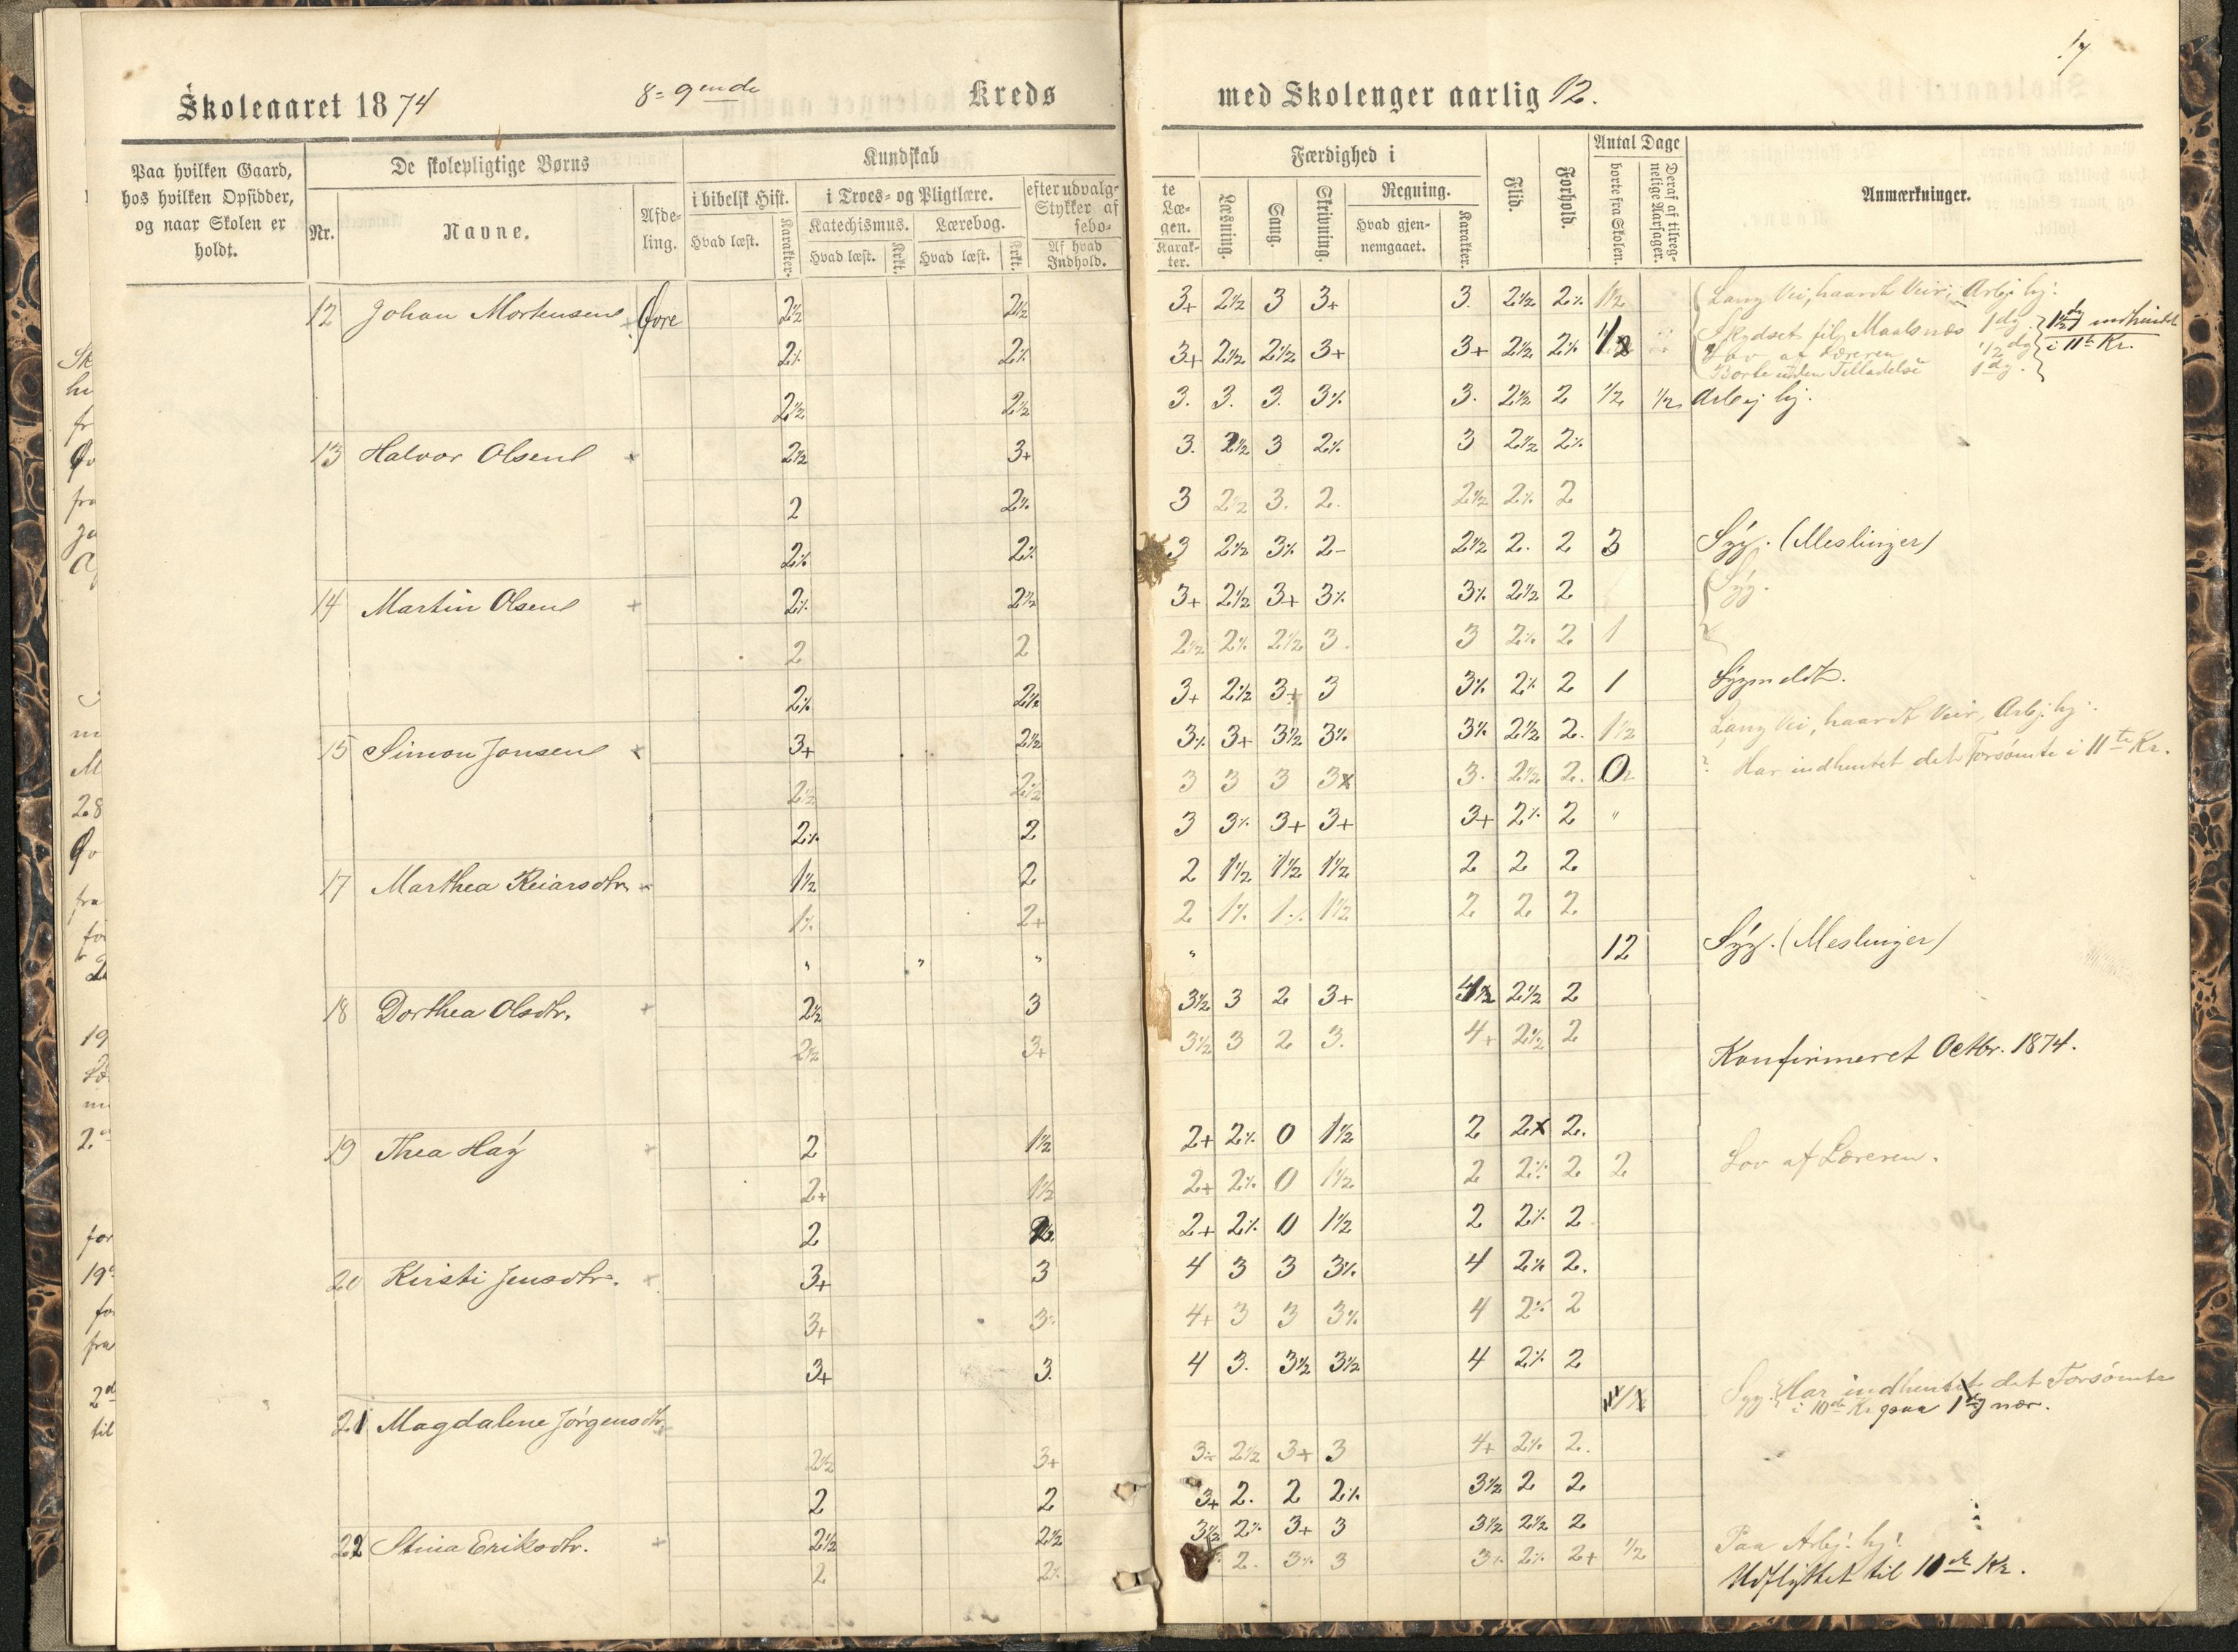 17
Skoleaaret 1874 8=9ende Kreds med Skolenger aarlig 12.
Paa hvilken Gaard, hos hvilken Opsidder, og naar Skolen er holdt.
De skolepligtige Børns
Nr. Navne. Afdeling.
Kundskab
i bibelsk Hist. Hvad læst. Karakter.
i Troes- og Pligtlære.
Katechismus. Hvad læst. Krkt.
Lærebog. Hvad læst. Krkt.
efter udvalg- Stykker af sebo-
Af hvad Indhold.
te Læ- gen. Karak- ter.
Færdighed i
Læsning. Sang. Skrivning.
Regning. Hvad gjennemgaaet. Karakter.
Flid. Forhold.
Antal Dage
borte fra Skolen. Deraf af tilregnelige Aarsager.
Anmærkninger.
12 Johan Mortensen Øvre 2½ 2½ 3+ 2½ 3 3+ 3. 2½ 2% 1½ Lang Vei, haardt Veir, Arbej hj.
2% 2% 3+ 2½ 2½ 3+ 3+ 2½ 2% Skydset til Maalsnes 1 dg.
Lov af Læreren ½ dg
Borte uden Tilladelse 1 dg.
i 11te Kr.
2½ 2½ 3. 3. 3. 3% 3. 2½ 2 ½ ½ Arbej hj.
13 Halvor Olsen 2½ 3+ 3. 2½ 3 2% 3 2½ 2%
2 2% 3 2½ 3. 2. 2½ 2% 2
2% 2% 3 2½ 3% 2- 2½ 2. 2 3 Syg. (Meslinger)
14 Martin Olsen 2% 2½ 3+ 2½ 3+ 3% 3% 2½ 2 Syg.
2 2 2½ 2% 2½ 3. 3 2% 2 1
2% 2½ 3+ 2½ 3+ 3 3% 2% 2 1 Sygmeldt.
15 Simon Jonsen 3+ 2½ 3% 3+ 3½ 3% 3% 2½ 2. 1½ Lang Vei, haardt Veir, Arbj. hj.
2½ 2½ 3 3 3 3 3. 2½ 2. 0 Har indhentet det Forsømte i 11te Kr.
2% 2 3 3% 3+ 3+ 3+ 2% 2 "
17 Marthea Reiarsdtr. 1½ 2 2 1½ 1½ 1½ 2 2 2
1% 2+ 2 1% 1% 1½ 2 2 2
" " " " 12 Syg. (Meslinger)
18 Dorthea Olsdtr. 2½ 3 3½ 3 2 3+ 2½ 2
2½ 3+ 3½ 3 2 3. 4+ 2½ 2
Konfirmeret Octbr. 1874.
19 Thea Høy 2 1½ 2+ 2% 0 1½ 2 2 2.
2+ 1½ 2+ 2% 0 1½ 2 2% 2 2 Lov af Læreren.
2 2+ 2% 0 1½ 2 2% 2
20 Kirsti Jensdtr. 3+ 3 4 3 3 3% 4 2% 2.
3+ 3% 4+ 3 3 3% 4 2% 2
3+ 3. 4 3. 3½ 3½ 4 2% 2
21 Magdalene Jørgensdtr. Syg. Har indhentet det Forsømte
i 10de Kr. paa 1 dg nær.
2½ 3+ 3÷ 2½ 3+ 3 4+ 2% 2.
2 2 3+ 2. 2 2% 3½ 2 2
22 Stina Eriksdtr. 2½ 2½ 3½ 2% 3+ 3 3½ 2½ 2
2 2% 2. 3% 3 3% 2% 2+ ½ Paa Arbj. hj.
Udflyttet til 10de Kr.